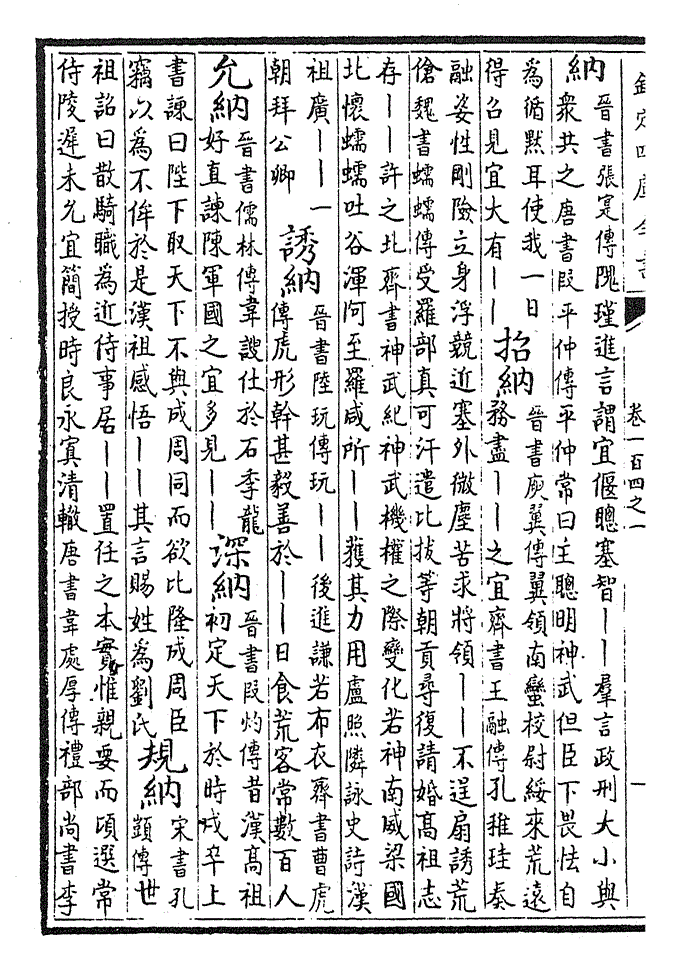 欽定四庫全書 卷一百四之一 一
納 晉書張寔傳隗瑾進言謂宜偃聰塞智||羣言政刑大小與
衆共之唐書段平仲傳平仲常曰主聰明神武但臣下畏怯自
為循黙耳使我一日
得召見宜大有||
招納 晉書庾翼傳翼領南蠻校尉綏來荒遠
務盡||之宜齊書王融傳孔稚珪奏
融姿性剛險立身浮競近塞外微塵苦求將領||不逞扇誘荒
傖魏書蠕蠕傳受羅部真可汗遣比拔等朝貢尋復請婚髙祖志
存||許之北齊書神武紀神武機權之際變化若神南威梁國
北懷蠕蠕吐谷渾阿至羅咸所||獲其力用盧照隣詠史詩漢
祖廣||一
朝拜公卿
誘納 晉書陸玩傳玩||後進謙若布衣齊書曹虎
傳虎形幹甚毅善於||日食荒客常數百人
允納 晉書儒林傳韋謏仕於石季龍
好直諫陳軍國之宜多見||
深納 晉書段灼傳昔漢髙祖
初定天下於時戍卒上
書諫曰陛下取天下不與成周同而欲比隆成周臣
竊以為不侔於是漢祖感悟||其言賜姓為劉氏
規納 宋書孔
顗傳世
祖詔曰散騎職為近侍事居||置任之本實惟親要而頃選常
侍陵遲未允宜簡授時良永寘清轍唐書韋處厚傳禮部尚書李